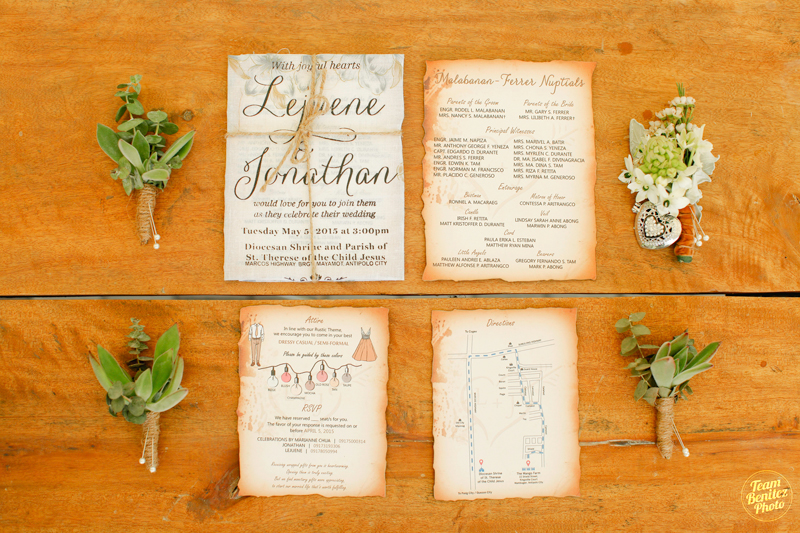 With joyful hearts
Lejuene
&
Jonathan
would love for you to join them
as they celebrate their wedding
Tuesday May 5, 2015 at 3:00pm
Diocesan Shrine and Parish of
St. Therese of the Child Jesus
MARCOS HIGHWAY, BRGY. MAYAMOT, ANTIPOLO CITY
Malabanan-Ferrer Nuptials
Parents of the Groom
ENGR. RODEL L. MALABANAN
MRS. NANCY S. MALABANAN†
Parents of the Bride
MR. GARY S. FERRER
MRS. LILIBETH A. FERRER†
Principal Witnesses
ENGR. JAIME M. NAPIZA
MR. ANTHONY GEORGE F. YENEZA
CAPT. EDGARDO D. DURANTE
MR. ANDRES S. FERRER
ENGR. EDWIN K. TAM
ENGR. NORMAN M. FRANCISCO
MR. PLACIDO C. GENEROSO
MRS. MARIVEL A. BATIR
MRS. CHONA S. YENEZA
MRS. MYRLEN C. DURANTE
DR. MA. ISABEL F. DIVINAGRACIA
MRS. MA. DENA S. TAM
MRS. RIZA F. RETITA
MRS. MYRNA M. GENEROSO
Entourage
Bestman
RONNEL A. MACARAEG
Matron of Honor
CONTESSA P. ARITRANGCO
Candle
IRISH F. RETITA
MATT KRISTOFFER D. DURANTE
Veil
LINDSAY SARAH ANNE ABONG
MARWIN P. ABONG
Cord
PAULA ERIKA L. ESTEBAN
MATTHEW RYAN MINA
Little Angels
PAULEEN ANDREI E. ABLAZA
MATTHEW ALFONSE P. ARITRANGCO
Bearers
GREGORY FERNANDO S. TAM
MARK P. ABONG
Attire
In line with our Rustic Theme,
we encourage you to come in your best
DRESSY CASUAL/SEMI-FORMAL
Please be guided by these colors
RSVP
We have reserved ___ seat/s for you.
The favor of your response is requested on or
before APRIL 5, 2015
CELEBRATIONS BY MARIANNE CHUA |
JONATHAN |
LEJUENE |
Directions
Diocesan Shrine
of St. Therese
of the Child Jesus
Team
Benitez
Photo